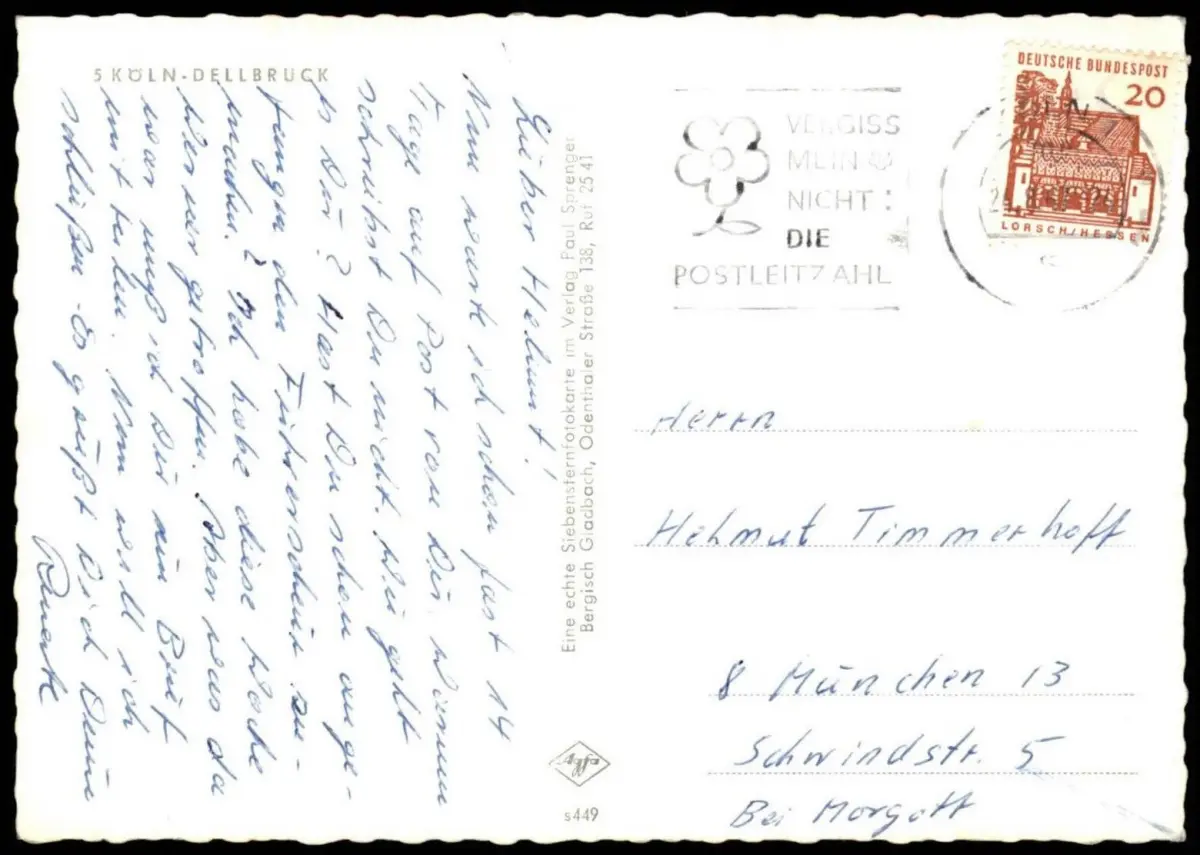 5 KÖLN-DELLBRÜCK
Lieber Helmut!
Nun warte ich schon fast 14
Tage auf Post von Dir. Warum
schreibst Du nicht. Wie geht
es Dir? Hast Du schon ange-
fangen den Führerschein zu
machen? Ich habe diese Woche
Werner getroffen. Aber was da
war muß ich Dir im Brief
mitteilen. Nun will ich
schließen. Es grüßt Dich Deine
Eine echte Siebensternfotokarte im Verlag Paul Sprenger
Bergisch Gladbach, Odenthaler Straße 138, Ruf 25 41
s449
VERGISS
MEIN
NICHT:
DIE
POSTLEITZAHL
DEUTSCHE BUNDESPOST
20
LORSCH/HESSEN
Herrn
Helmut Timmerhoff
8 München 13
Schwindstr. 5
Bei Morgott